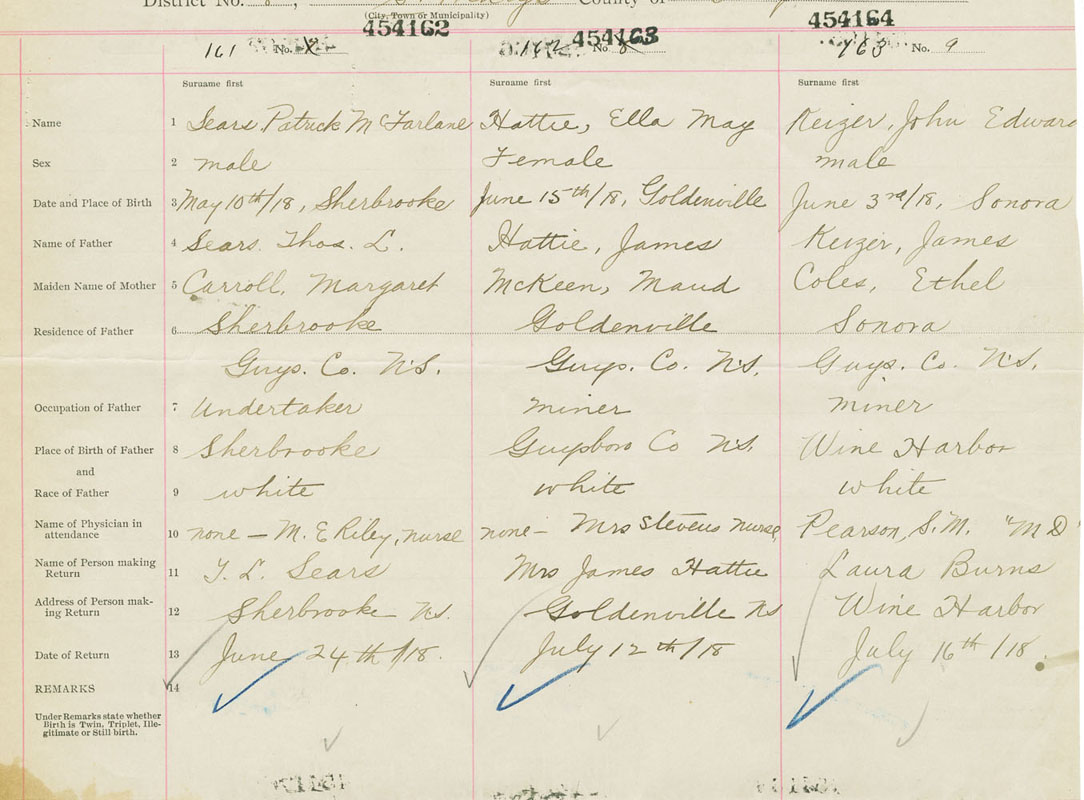 District No. 8, St Marys County of
(City, Town or Municipality)
454162 454163 454164
161 No. 162 No. 8 163 No. 9
Surname first Surname first Surname first
Name 1 Sears, Patrick McFarlane Hattie, Ella May Keizer, John Edward
Sex 2 male Female male
Date and Place of Birth 3 May 10th/18, Sherbrooke June 15th/18, Goldenville June 3rd/18, Sonora
Name of Father 4 Sears, Thos. L. Hattie, James Keizer, James
Maiden Name of Mother 5 Carroll, Margaret McKeen, Maud Coles, Ethel
Residence of Father 6 Sherbrooke Goldenville Sonora
Guys. Co. N.S. Guys. Co. N.S. Guys. Co. N.S.
Occupation of Father 7 Undertaker miner miner
Place of Birth of Father 8 Sherbrooke Guysboro Co N.S. Wine Harbor
and
Race of Father 9 white white white
Name of Physician in
attendance 10 none — M. E Riley, nurse none — Mrs Stevens nurse Pearson, S.M. "M D"
Name of Person making
Return 11 T. L. Sears Mrs James Hattie Laura Burns
Address of Person mak-
ing Return 12 Sherbrooke N.S. Goldenville NS Wine Harbor
Date of Return 13 June 24th/18. July 12th/18 July 16th/18.
REMARKS 14
Under Remarks state whether
Birth is Twin, Triplet, Ille-
gitimate or Still birth.